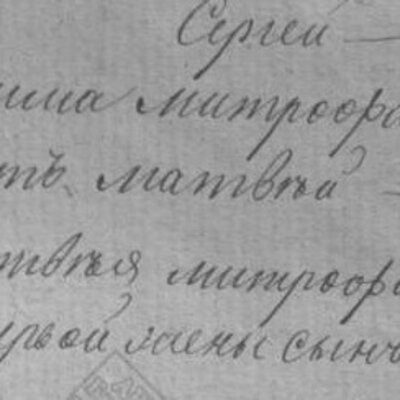 Сергей —
има митрофа
тъ матвѣй —
твѣя митрофа
ервой жены сынъ